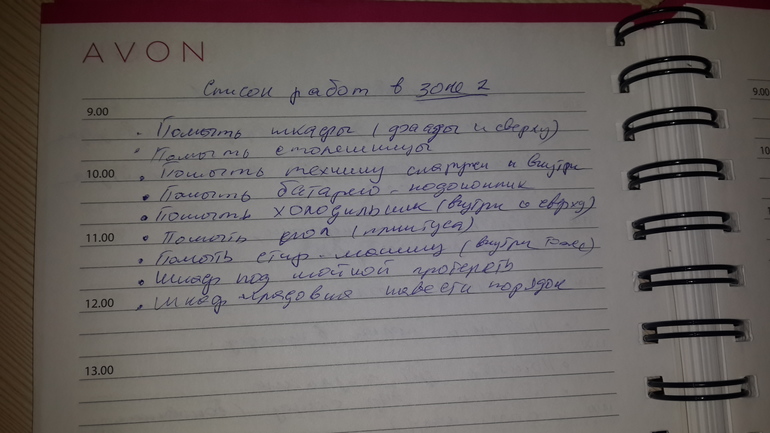 AVON
Список работ в зоне 2
9.00
• Помыть шкафы (фасады и сверху)
• Помыть столешницы
10.00
• Помыть технику снаружи и внутри
• Помыть батарею, подоконник
• Помыть холодильник (внутри и сверху)
11.00
• Помыть пол (плинтуса)
• Помыть стир. машину (внутри тоже)
• Шкаф под мойкой протереть
12.00
• Шкаф-кладовая навести порядок
13.00
9.00